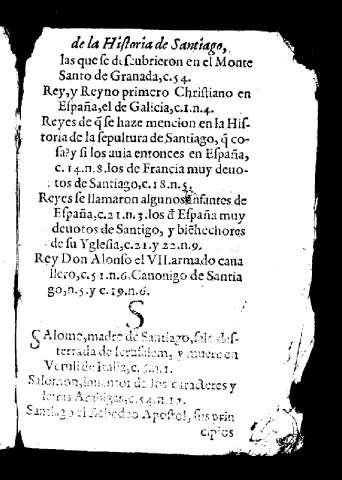 de la Historia de Santiago,
las que se descubrieron en el Monte
Santo de Granada, c. 54.
Rey, y Reyno primero Christiano en
España, el de Galicia, c. 1. n. 4.
Reyes de q̃ se haze mencion en la His-
toria de la sepultura de Santiago, q̃ co-
sa? y si los auia entonces en España,
c. 14. n. 8. los de Francia muy deuo-
tos de Santiago, c. 18. n. 5.
Reyes se llamaron algunos Infantes de
España, c. 21. n. 5. los d̃ España muy
deuotos de Santigo, y biẽhechores
de su Yglesia, c. 21. y 22. n. 9.
Rey Don Alonso el VII. armado caua
llero, c. 51. n. 6. Canonigo de Santia
go, n. 5. y c. 19. n. 6.
S
SAlome, madre de Santiago, sale des-
terrada de Ierusalem, y muere en
Veruli de Italia, c.
Salomon, inuentor de los caracteres y
letras Arabigas, c. 54. n. 12.
Santiago el Zebedeo Apostol, sus prin
cipios